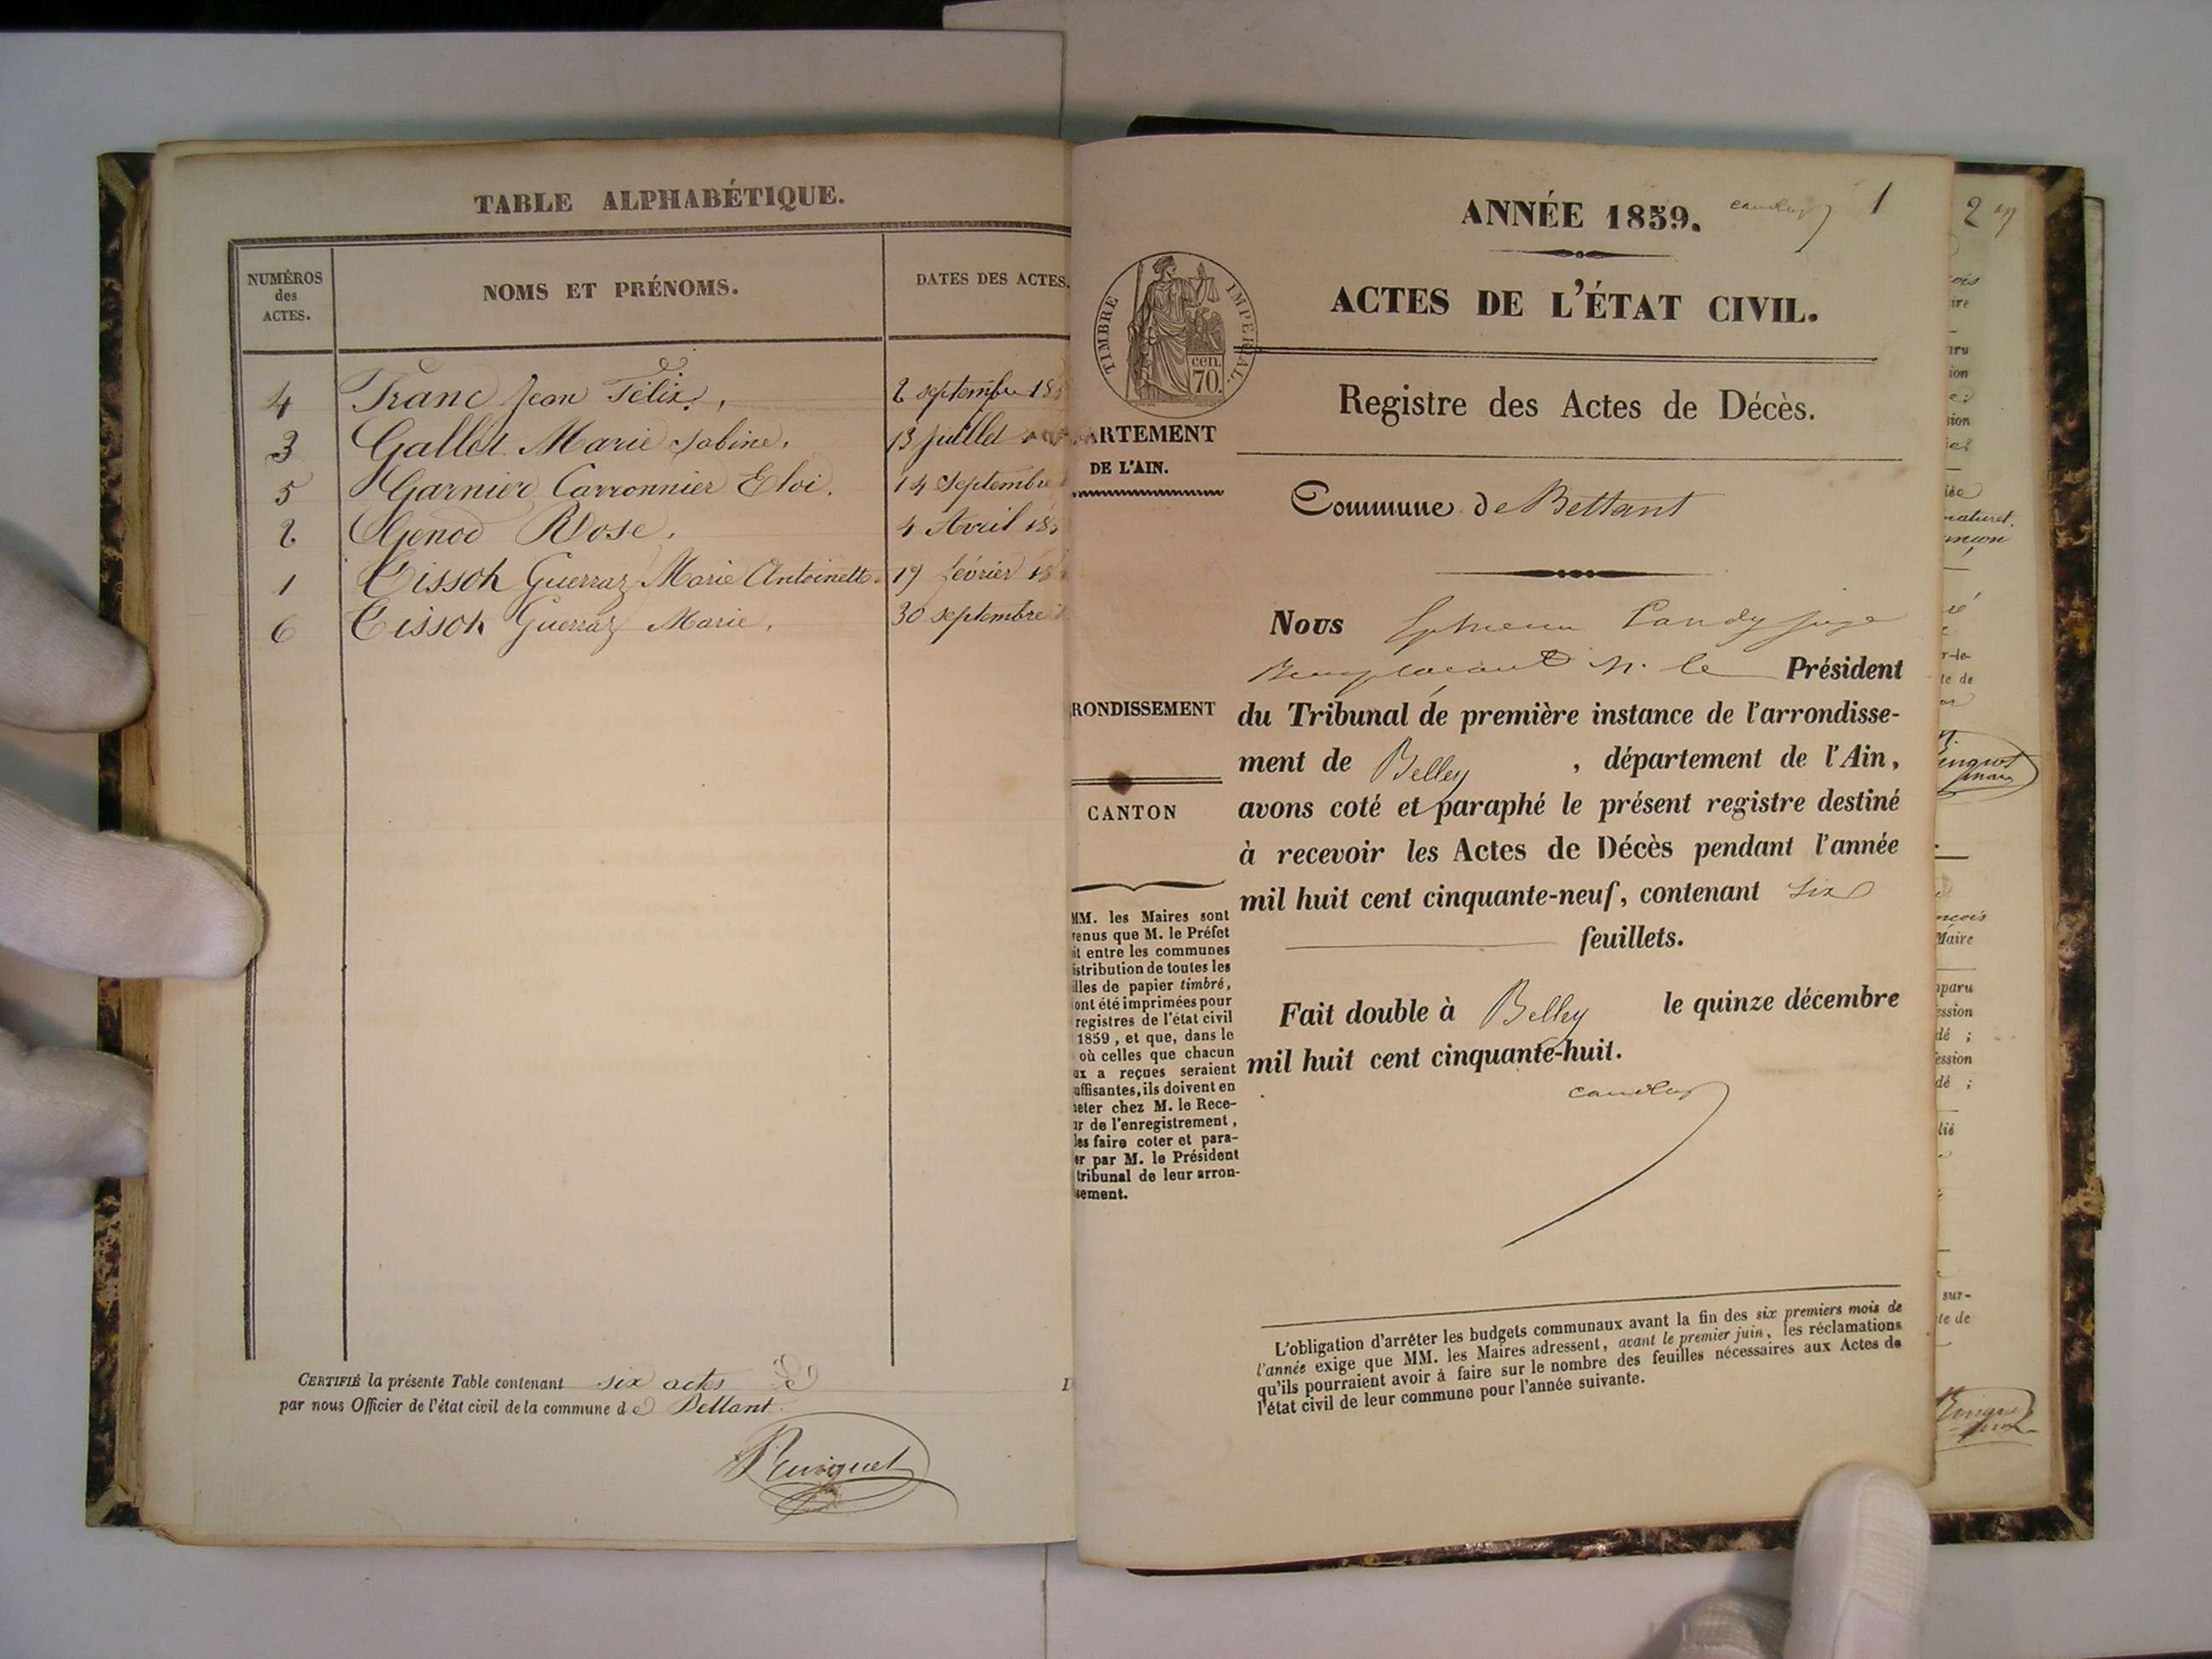 TABLE ALPHABÉTIQUE.
NUMÉROS des ACTES.
NOMS ET PRÉNOMS.
DATES DES ACTES.
4 Franc Jean Félix, 2 septembre 18
3 Gallet Marie Sabine, 13 Juillet
5 Garnier Carronnier Eloi, 14 Septembre
2 Genod Rose, 4 Avril 18
1 Tissot Guerraz Marie Antoinette 19 février 18
6 Tissot Guerraz Marie, 30 septembre
CERTIFIÉ la présente Table contenant six actes
par nous Officier de l'état civil de la commune de Bettant.
Ruinguet
1
ANNÉE 1859.
TIMBRE IMPERIAL.
cen. 70.
ACTES DE L'ÉTAT CIVIL.
Registre des Actes de Décès.
ARTEMENT
DE L'AIN.
Commune de Bettant
Nous Candy juge
remplaçant M. le Président
RONDISSEMENT
du Tribunal de première instance de l'arrondisse-
ment de Belley, département de l'Ain,
avons coté et paraphé le présent registre destiné
CANTON
à recevoir les Actes de Décès pendant l'année
mil huit cent cinquante-neuf, contenant six
feuillets.
Fait double à Belley le quinze décembre
mil huit cent cinquante-huit.
MM. les Maires sont
venus que M. le Préfet
it entre les communes
istribution de toutes les
illes de papier timbré,
ont été imprimées pour
registres de l'état civil
1859, et que, dans le
où celles que chacun
ux a reçues seraient
uffisantes, ils doivent en
heter chez M. le Rece-
ur de l'enregistrement,
les faire coter et para-
er par M. le Président
tribunal de leur arron-
sement.
L'obligation d'arrêter les budgets communaux avant la fin des six premiers mois de
l'année exige que MM. les Maires adressent, avant le premier juin, les réclamations
qu'ils pourraient avoir à faire sur le nombre des feuilles nécessaires aux Actes de
l'état civil de leur commune pour l'année suivante.
2